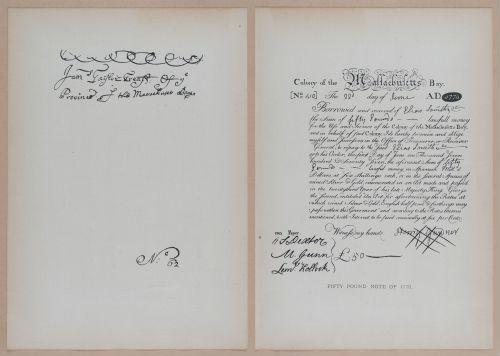 Jams Taylor Treasr. Of ye
Province of the Massachusets
No. 62
Colony of the Massachusetts Bay.
[No. 410] The 22d day of June A.D. 1770
Borrowed and received of Elias Smith
the Sum of fifty Pounds — lawfull money
for the Use and Service of the Colony of the Massachusetts Bay,
and in behalf of said Colony, I do hereby promise and oblige
myself and Successors in the Office of Treasurer or Receiver
General, to repay to the said Elias Smith
or to his Order, the first Day of June one Thousand Seven
Hundred & Seventy the aforesaid Sum of fifty
Pounds — lawful money in Spanish Mill'd
Dollars at six shillings each, or in the several Species of
coined Silver & Gold, enumerated in an Act made and passed
in the twenty third Year of his late Majesty King George
the second, entitled An Act for ascertaining the Rates at
which coined Silver & Gold, English half pence & farthings may
pass within this Government and according to the Rates therein
mentioned, with Interest to be paid annually at six per Cent.
Witness my hand.
S Dexter
M. Gunn
£.50
FIFTY POUND NOTE OF 1770.